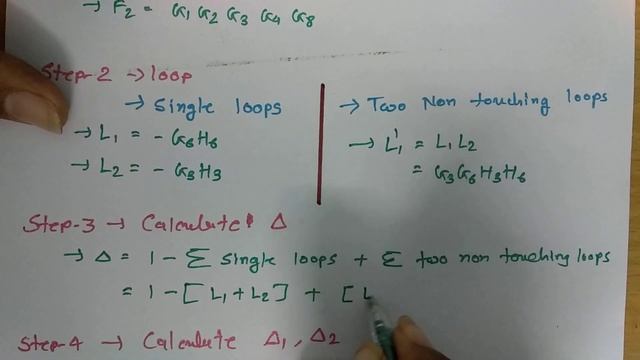 → F₂ = G₁ G₂ G₃ G₄ G₈
Step-2 → loop
→ Single loops
→ L₁ = - G₆H₆
→ L₂ = - G₃H₃
→ Two Non touching loops
→ L₁' = L₁ L₂
= G₃G₆H₃H₆
Step-3 → Calculate Δ
→ Δ = 1 - Σ single loops + Σ two non touching loops
= 1 - [L₁+L₂] + [L
Step-4 → Calculate Δ₁, Δ₂